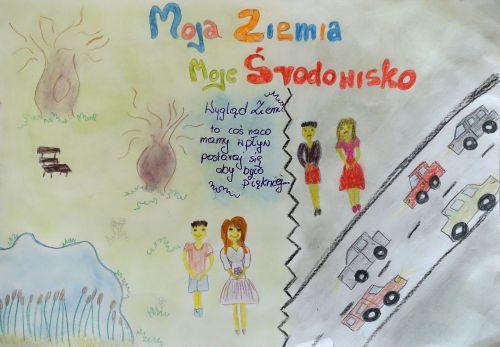 Moja Ziemia
Moje Środowisko
Wygląd Ziemi
to coś na co
mamy wpływ
postaraj się
aby było
piękniej...